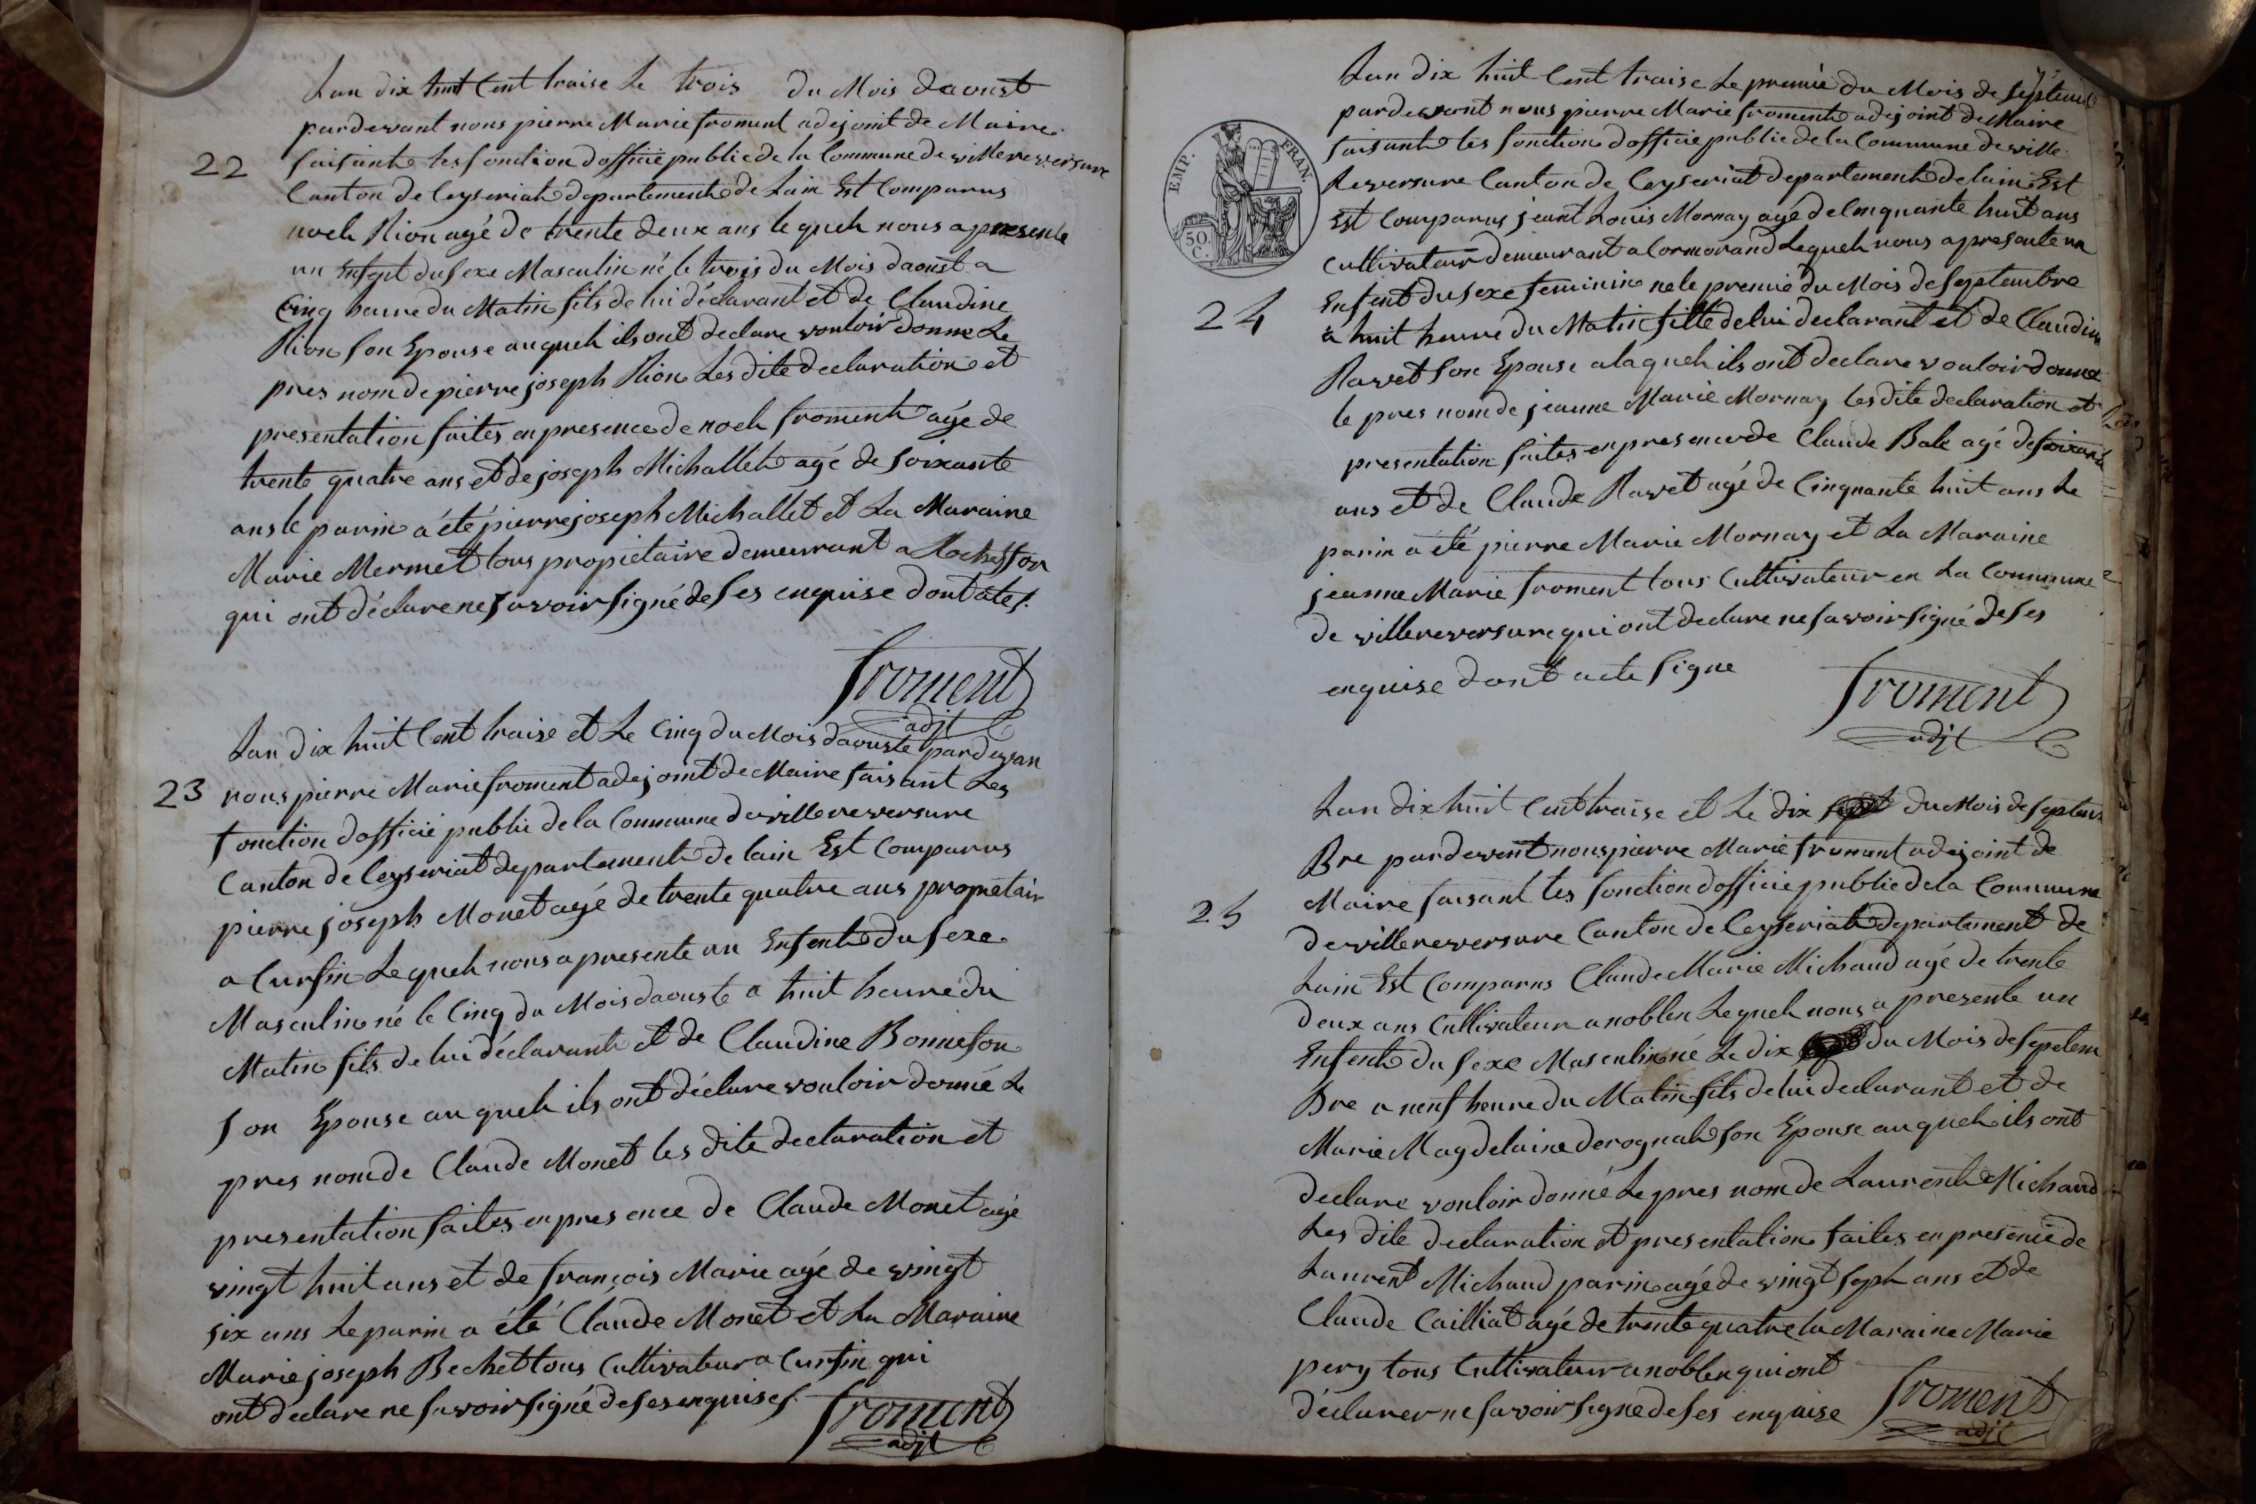 Lan dix huit Cent traise Le trois du Mois daoust
pardevant nous pierre Marie froment adejoint de Maire
22 faisante les fonction dofficié public de la Commune de villereversure
Canton de Ceyseriat departemente de Lain Est Comparus
noel Rion agé de trente deux ans le quel nous apresente
un Enfent du sexe Masculin né le trois du Mois daoust a
Cinq heure du Matin fils de lui déclarant et de Claudine
Rion son Epouse au quel ils ont declare vouloir donne Le
pres nom de pierre joseph Rion Les dite declaration et
presentation faites en presence de noel froment agé de
trente quatre ans et de joseph Michallet agé de soixante
ans le parin a été pierre joseph Michallet et La Maraine
Marie Mermet tous propietaire demeurant a Rocheffor
qui ont déclare ne savoir signé de ses enquise dont ate s.
froment
adjt
Lan dix huit Cent traise et Le Cinq du Mois daouste pardevan
23 nous pierre Marie froment adejoint de Maire faisant Les
fonction dofficié public de la Commune de villereversure
Canton de Ceyseriat departemente de lain Est Comparus
pierre joseph Monet agé de trente quatre ans propietair
a Cursin Le quel nous apresente un Enfente du sexe
Masculin né le Cinq du Mois daouste a huit heure du
Matin fils de lui déclarant et de Claudine Bonneson
son Epouse au quel ils ont déclare vouloir donné Le
pres nom de Claude Monet les dite declaration et
presentation faites en presence de Claude Monet agé
vingt huit ans et de françois Marie agé de vingt
six ans Le parin a été Claude Monet et La Maraine
Marie joseph Bechet tous Cultivateur a Cursin qui
ont declare ne savoir signé de ses enquise s.
froment
adjt
Lan dix huit Cent traise Le premié du Mois de septem
pardevent nous pierre Marie fromente adejoint de Maire
faisante les fonction dofficie public de la Commune de ville
Reversure Canton de Ceyseriat departemente de lain Est
Est Comparus jeant Louis Mornay agé de Cinquante huit ans
Cultivateur demeurant a Cormorand Le quel nous apresente un
Enfent du sexe feminin ne le premié du Mois de septembre
EMP. FRAN.
50. C.
24 a huit heure du Matin fille de lui declarant et de Claudin
Ravet son Epouse a la quel ils ont declare vouloir donne
le pres nom de jeanne Marie Mornay les dite declaration et
presentation faites en presence de Claude Bale agé de soixant
ans et de Claude Ravet agé de Cinquante huit ans Le
parin a été pierre Marie Mornay et La Maraine
jeanne Marie froment tous Cultivateur en La Commune
de villereversure qui ont declare ne savoir signé de ses
enquise dont acte signe
froment
adjt
Lan dix huit Cent traise et Le dix du Mois de septem
Bre pardevent nous pierre Marie froment adejoint de
Maire faisant les fonction dofficié public de la Commune
25 de villereversure Canton de Ceyseriat departement de
Lain Est Comparus Claude Marie Michaud agé de trente
deux ans Cultivateur a noblen Le quel nous a presente un
Enfente du sexe Masculin né Le dix du Mois de septem
Bre a neuf heure du Matin fils de lui declarant et de
Marie Magdelaine derognat son Epouse au quel ils ont
declare vouloir donné Le pres nom de Laurent Michaud
Les dite declaration et presentation faites en presence de
Laurent Michaud parin agé de vingt seph ans et de
Claude Cailliat agé de trente quatre la Maraine Marie
pery tous Cultivateur a noblen qui ont
déclarer ne savoir signe de ses enquise
froment
adjt